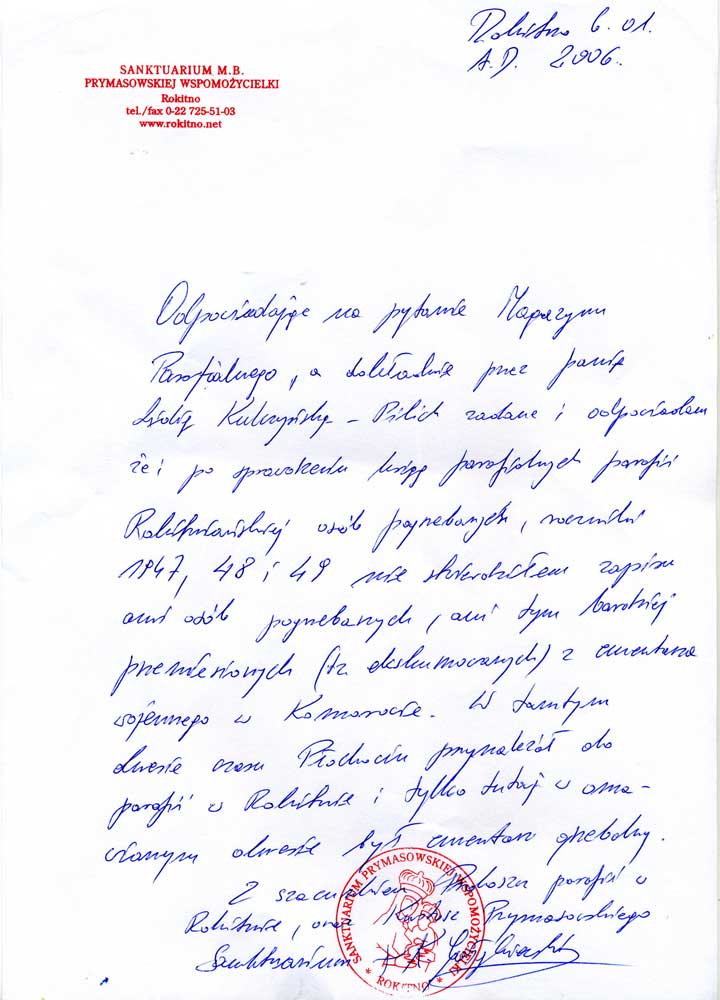 Rokitno 6.01.
A.D. 2006.
SANKTUARIUM M.B.
PRYMASOWSKIEJ WSPOMOŻYCIELKI
Rokitno
tel./fax 0-22 725-51-03
www.rokitno.net
Odpowiadając na pytanie Magazynu
Parafialnego, a dokładnie przez panią
Kulczyńską - Pilich zadane i odpowiadam
że i po sprawdzeniu ksiąg parafialnych parafii
Rokitniańskiej osób pogrzebanych, roczniki
1947, 48 i 49 nie stwierdziłem zapisu
ani osób pogrzebanych, ani tym bardziej
przeniesionych (tz. ekshumowanych) z cmentarza
wojennego w Komorowie. W tamtym
okresie czasu Płochocin przynależał do
parafii w Rokitnie i tylko tutaj w oma-
wianym okresie był cmentarz grzebalny.
Z szacunkiem Proboszcz parafii w
Rokitnie, oraz Kustosz Prymasowskiego
Sanktuarium
SANKTUARIUM PRYMASOWSKIEJ WSPOMOŻYCIELKI
* ROKITNO *